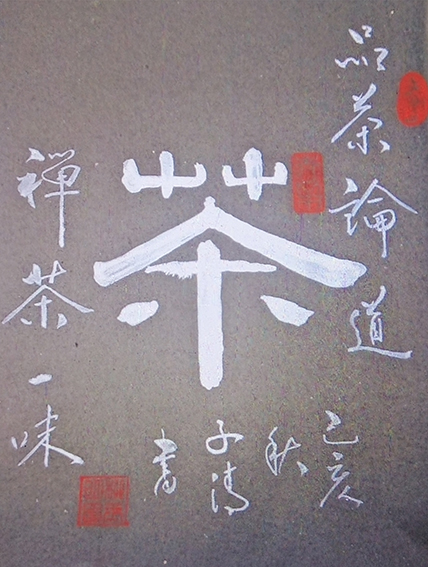 品茶論道
茶
禅茶一味
乙亥
秋
子涛
書